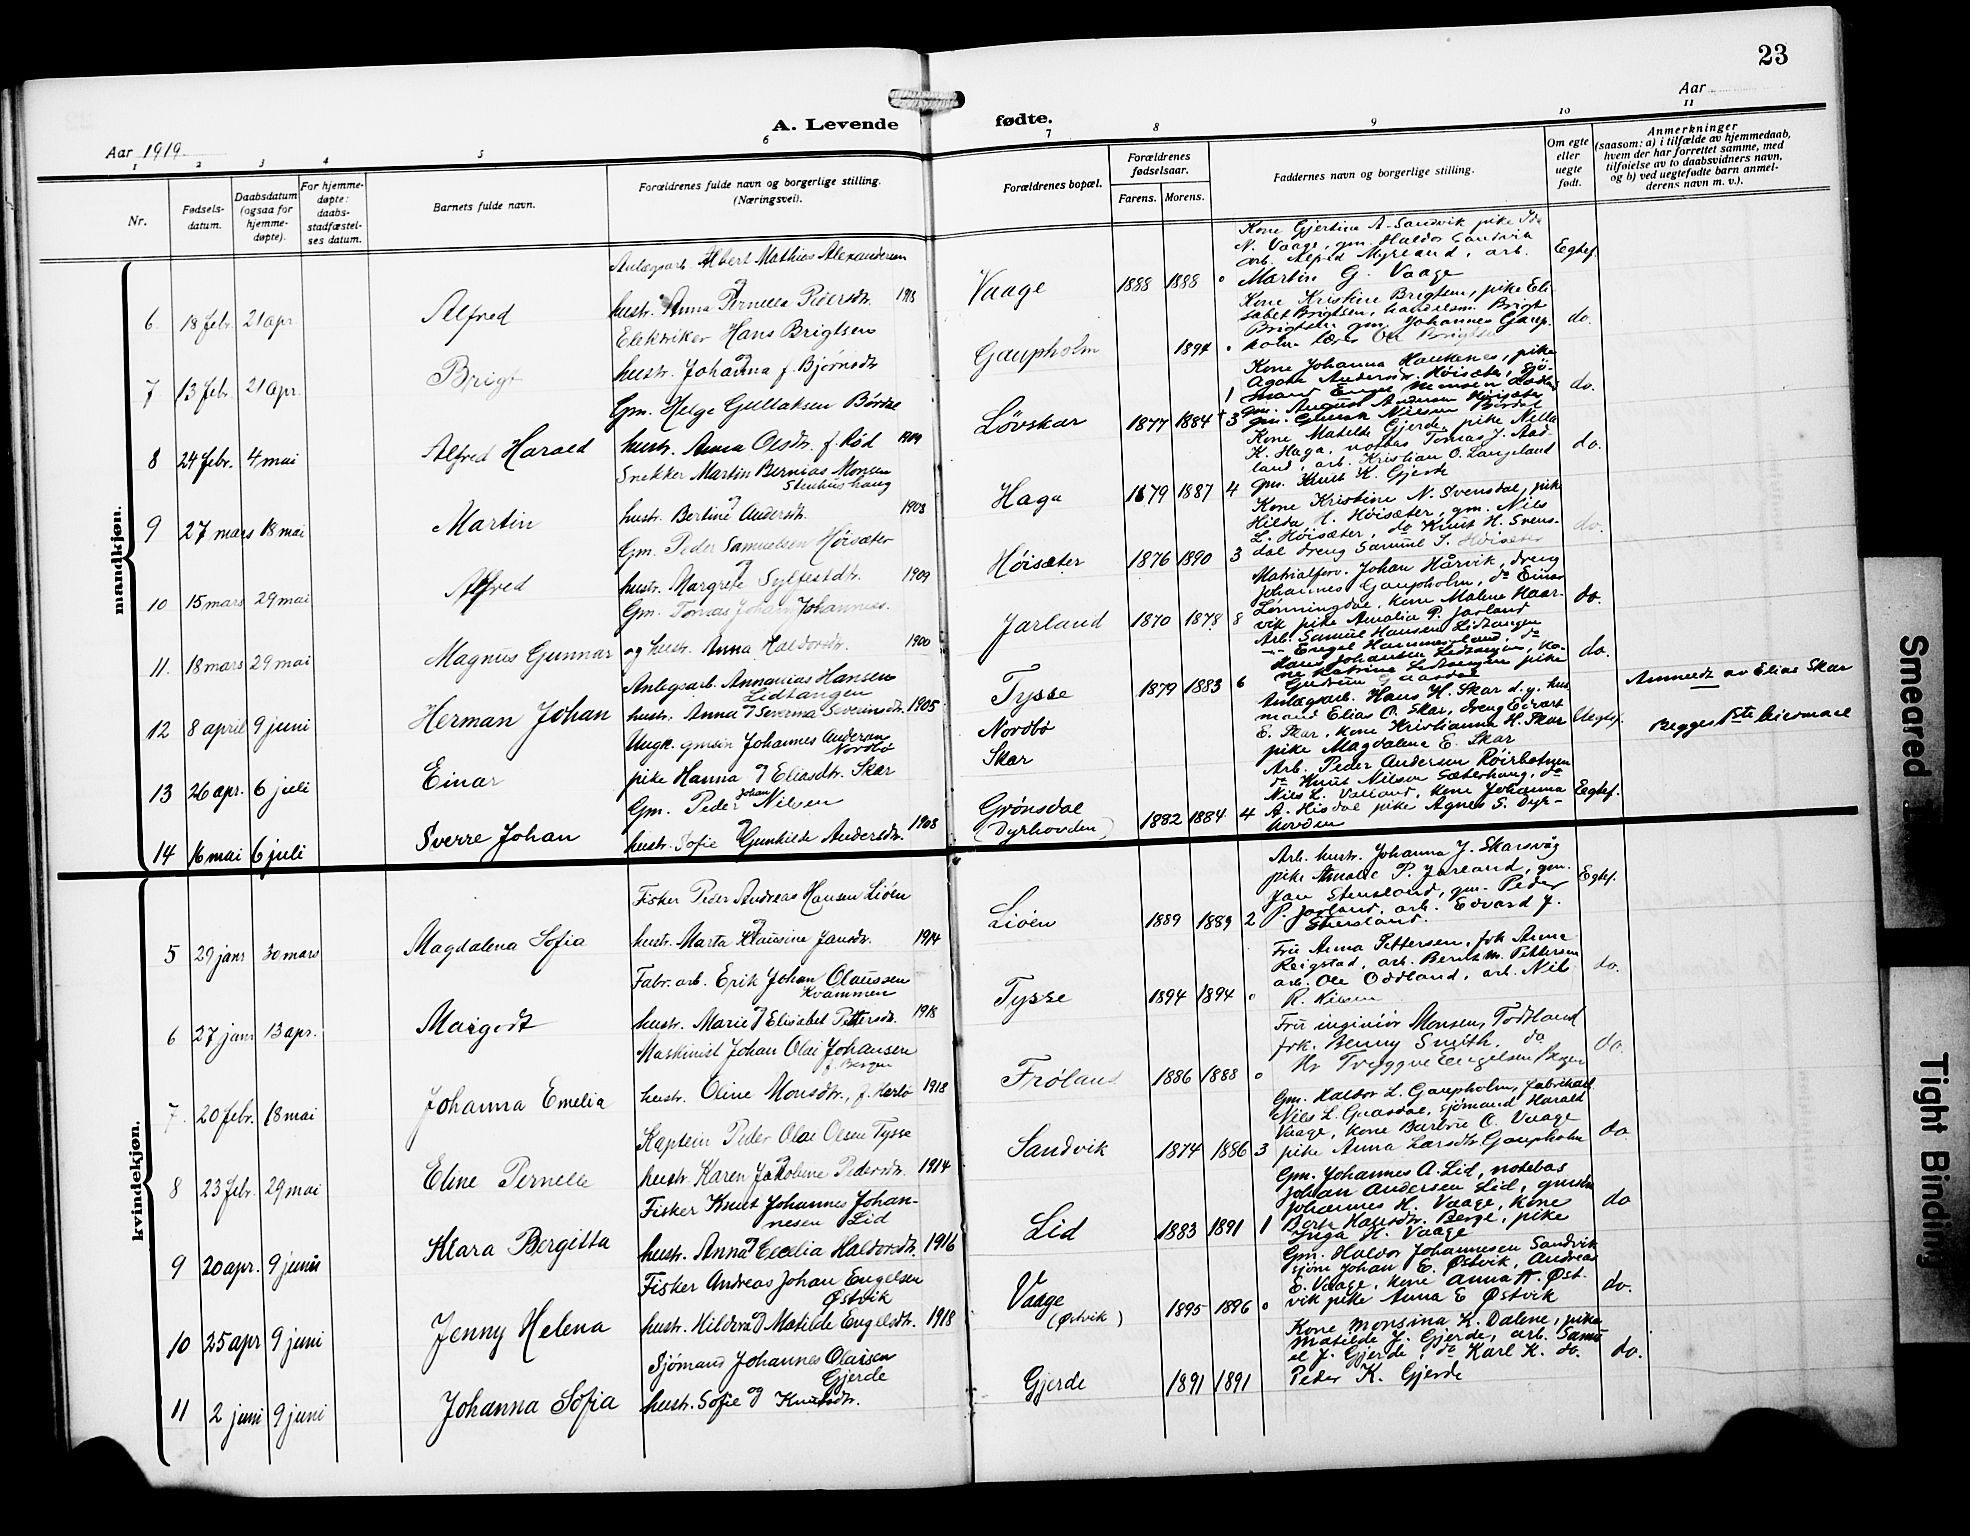 23
Aar
A. Levende fødte.
Aar 1919.
1 2 3 4 5 6 7 8 9 10 11
Nr.
Fødsels-
datum.
Daabsdatum
(ogsaa for
hjemme-
døpte).
For hjemme-
døpte:
daabs-
stadfæstel-
ses datum.
Barnets fulde navn.
Forældrenes fulde navn og borgerlige stilling.
(Næringsvei).
Forældrenes bopæl.
Forældrenes
fødselsaar.
Farens. Morens.
Faddernes navn og borgerlige stilling.
Om egte
eller
uegte
født.
Anmerkninger
(saasom: a) i tilfælde av hjemmedaab,
hvem der har forrettet samme, med
tilføielse av to daabsvidners navn,
og b) ved uegtefødte barn anmel-
derens navn m. v.).
mandkjøn.
6. 18 febr. 21 apr. Alfred
Anlægsarb. Albert Mathias Alexandersen
hustr. Anna Pernella Pedersdtr. 1918
Vaage 1888 1888 0
Kone Gjertine A. Sandvik pike Ida
N. Vaage, gm. Haldor Sandvik
arb. Alfred Myrland, arb.
Martin G. Vaage
Egtef.
7 13 febr 21 apr. Brigt
Elektriker Hans Brigtsen
hustr. Johanna f. Bjørnsdtr
Gaupholm 1894
Kone Kristine Brigtsen, pike Eli-
sabet Brigtsen, handelsm. Brigt
Brigtsen gm. Johannes Gaup-
holm lærer Ole Brigtsen
do.
8 24 febr. 4 mai Alfred Harald
Gm. Helge Gullaksen Børdal
hustr. Anna Olsdtr. f. Rød 1909
Løvskar 1877 1884 1 + 3
Kone Johanna Haukenes, pike
Agate Andersdtr. Høisæter, sjø-
mand Engel Monsen
gm. August Andersen Høisæter
gm. Gullak Nilsen Børdal
do.
9 27 mars 18 mai Martin
Snekker Martin Bernias Monsen
Stenhushaug
hustr. Bertine Andersdtr. 1908
Haga 1879 1887 4
Kone Matilde Gjerde, pike Nilla
K. Haga, notbas Tomas J. Aad-
land, arb. Kristian O. Langeland
gm. Knut K. Gjerde
do.
10 15 mars 29 mai Alfred
Gm. Peder Samuelsen Høisæter
hustr. Margrete Sylfestdtr. 1909
Høisæter 1876 1890 3
Kone Kristine N. Svensdal, pike
Hilda H. Høisæter, gm. Nils
L. Høisæter, do Knut H. Svens-
dal dreng Samuel S. Høisæter
do.
11. 18 mars 29 mai Magnus Gunnar
Gm. Tomas Johan Johannes.
og hustr. Anna Haldorsdtr. 1900
Jarland 1870 1878 8
Matrialforv. Johan Hårvik, dreng
Johannes Gaupholm, do Einar
Lønningdal, kone Malene Haar-
vik pike Amalia P. Jarland
do.
12 8 april 9 juni Herman Johan
Anlegsarb. Annanias Hansen
Lidtangen
hustr. Anna Severina Severinsdtr. 1905
Tysse 1879 1883 6
Arb. Samuel Hansen Lidtangen
Engel Hammersland, do
Hans Johansen Lidtangen, ko-
ne Katrina Lidtangen pike
Gudrun Gaasdal
do.
13 26 apr. 6 juli Einar
Ungk. gmsøn Johannes Andersen
Nordbø
pike Hanna Eliasdtr. Skar
Nordbø
Skar
Anlægarb. Hans H. Skar d.y. hus
mand Elias O. Skar, dreng Eivart
E. Skar, kone Kristianna H. Skar
pike Magdalena E. Skar
Uegtef.
Anmeldt av Elias Skar
Begges 1ste leiermaal
14 16 mai 6 juli Sverre Johan
Gm. Peder Johan Nilsen
hustr. Sofie Gunhilde Andersdtr. 1908
Grønsdal
(Dyrhovden) 1882 1884 4
Arb. Peder Andersen Røirbotnen
do Knut Nilsen Sæterhaug, do
Nils L. Valland, kone Johanna
A. Hisdal pike Agnes S. Dyr-
hovden
Egtef.
kvindekjøn.
5 29 janr 30 mars Magdalena Sofia
Fisker Peder Andreas Hansen Liøen
hustr. Marta Klausine Jansdtr. 1914
Liøen 1889 1889 2
Arb. hustr. Johanna J. Skarsvåg
pike Amalie P. Jarland, gm.
Jan Stensland, gm. Peder
P. Jarland, arb. Edvard J.
Stensland.
Egtef.
6 27 janr 13 apr. Margodt
Fabr. arb. Erik Johan Olaussen
Kvammen
hustr. Marie Elisabet Pettersdtr. 1918
Tysse 1894 1894 0
Fru Anna Pettersen, frk Anna
Reigstad, arb. Bernt M. Pettersen
arb. Ole Oddland, arb. Nils
R. Nilsen
do.
7. 20 febr. 18 mai Johanna Emelia
Maskinist Johan Olai Johansen
f. Bergen
hustr. Oline Monsdtr., f. Herlø 1918
Frøland 1886 1888 0
Fru ingeniør Monsen, Toddland
frk. Benny Smith, do
Hr Tryggve Engelsen Bergen
do.
8 23 febr. 29 mai Eline Pernella
Kaptein Peder Olai Olsen Tysse
hustr. Karen Jakobine Pedersdtr. 1914
Sandvik 1874 1886 3
Gm. Haldor L. Gaupholm, fabrikarb
Nils L. Gaasdal, sjømand Harald
Vaage, kone Barbro O. Vaage
pike Anna Larsdtr Gaupholm
do.
9 20 apr. 9 juni Klara Bergitta
Fisker Knut Johannes Johan-
nesen Lid
hustr. Anna Cecelia Haldorsdtr. 1916
Lid 1883 1891 1
Gm. Johannes A. Lid, notebas
Johan Andersen Lid, gmsøn
Johannes H. Vaage, kone
Berta Hansdtr. Berge, pike
Inga H. Vaage
do
10 25 apr 9 juni Jenny Helena
Fisker Andreas Johan Engelsen
Østvik
hustr. Hildera Matilde Engelsdtr. 1918
Vaage
(Østvik) 1895 1896 0
Gm. Haldor Johannesen Sandvik
sjøm Johan E. Østvik, Andreas
E. Vaage, kone Anna A. Øst-
vik pike Anna E Østvik
do.
11 2 juni 9 juni Johanna Sofia
Sjømand Johannes Olaisen
Gjerde
hustr. Sofie Knutsdtr.
Gjerde 1891 1891
Kone Monsina K. Dalene, pike
Matilde J. Gjerde, arb. Samu-
el J. Gjerde, do Karl K. do.
Peder K. Gjerde
do.
Smeared
Tight Binding